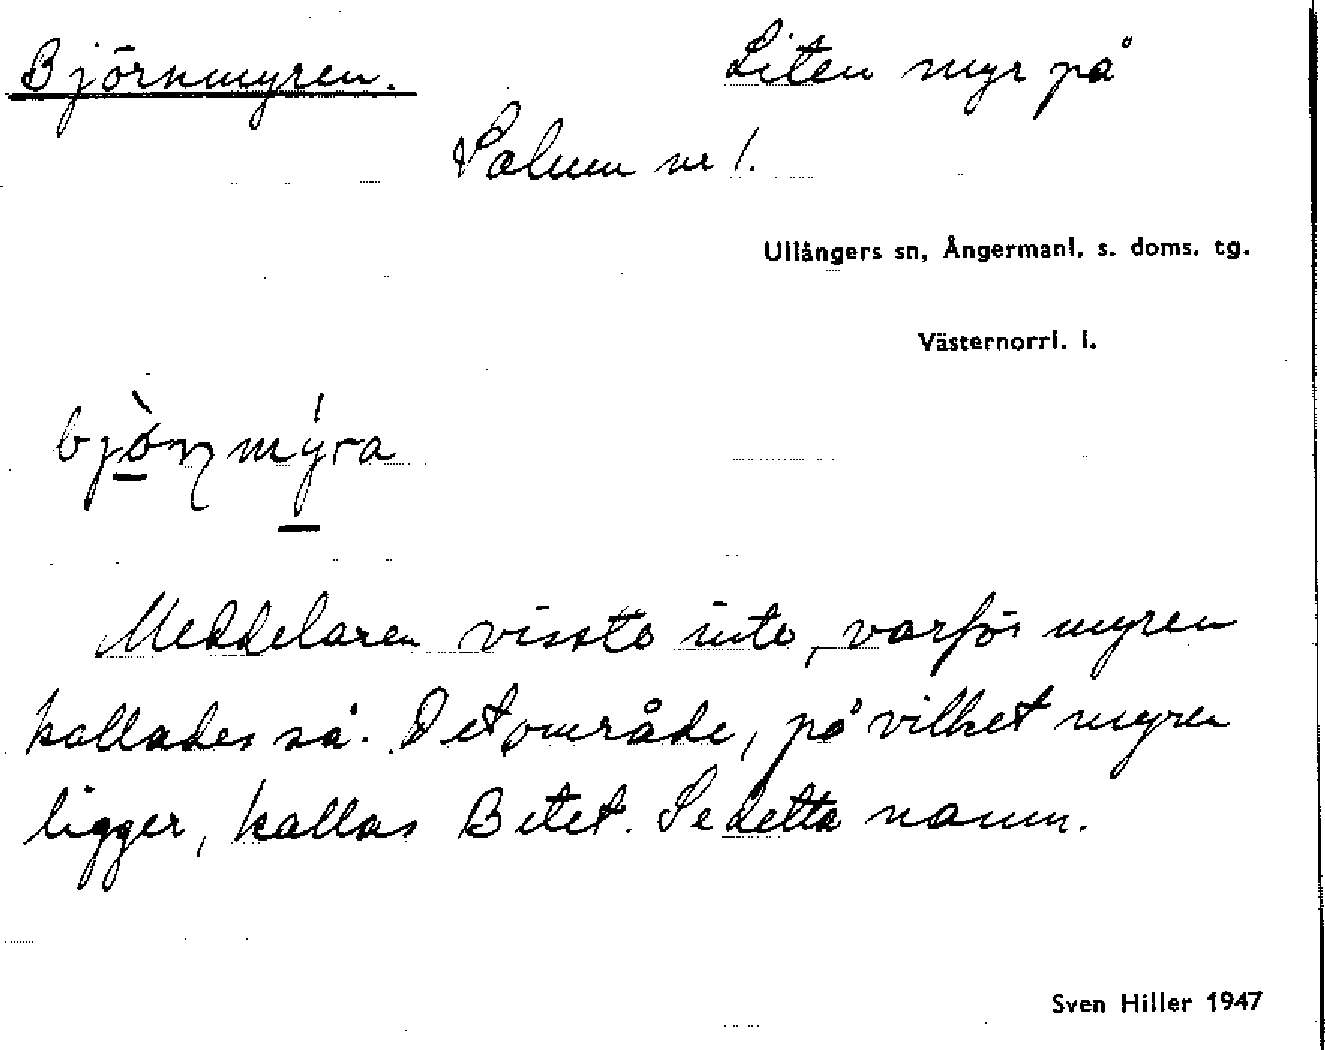 Björnmyren. Liten myr på
Salum nr 1.
Ullångers sn, Ångermanl. s. doms. tg.
Västernorrl. l.
bjò̱ɳmý̱ra
Meddelaren visste inte, varför myren
kallades så. Det område, på vilket myren
ligger, kallas Betet. Se detta namn.
Sven Hiller 1947